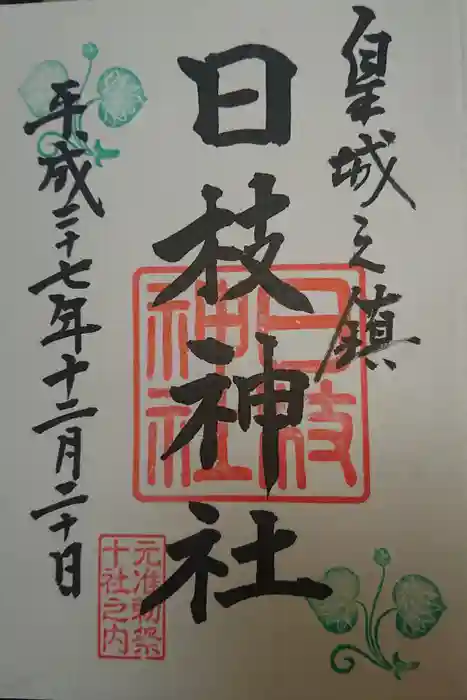 皇城之鎮
日枝神社
平成二十七年十二月二十日
日枝
神社
元准勅祭
十社之内